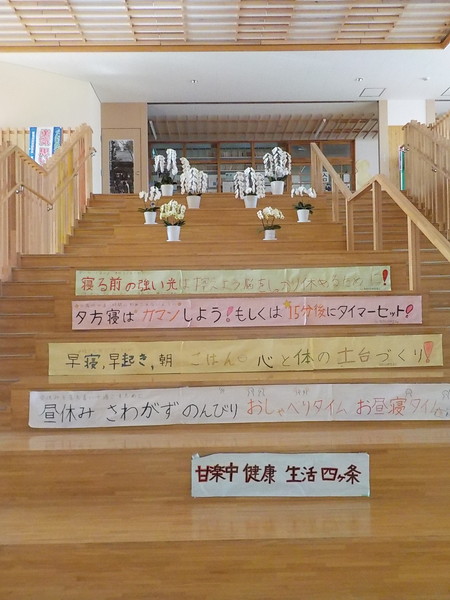 寝る前の強い光は
夕方寝は ガマンしよう!もしくは 15分後にタイマーセット!
早寝,早起き,朝ごはんで 心と体の土台づくり!
昼休み さわがず のんびり おしゃべりタイム お昼寝タイム
甘楽中 健康 生活 四ヶ条